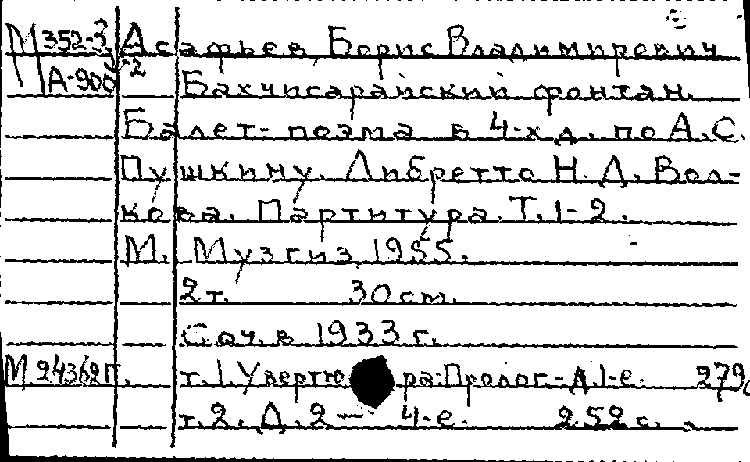 М 352-3 Асафьев, Борис Владимирович
А-900 -2 Бахчисарайский фонтан.
Балет-поэма в 4-х д. по А.С.
Пушкину. Либретто Н.Д. Вол-
кова. Партитура. Т.1-2.
М. Музгиз, 1955.
2 т. 30 см.
Соч. в 1933 г.
М 24362п. т.1. Увертюра: Пролог.-д.1-е. 279с
т.2. Д.2 — 4-е. 252 с.